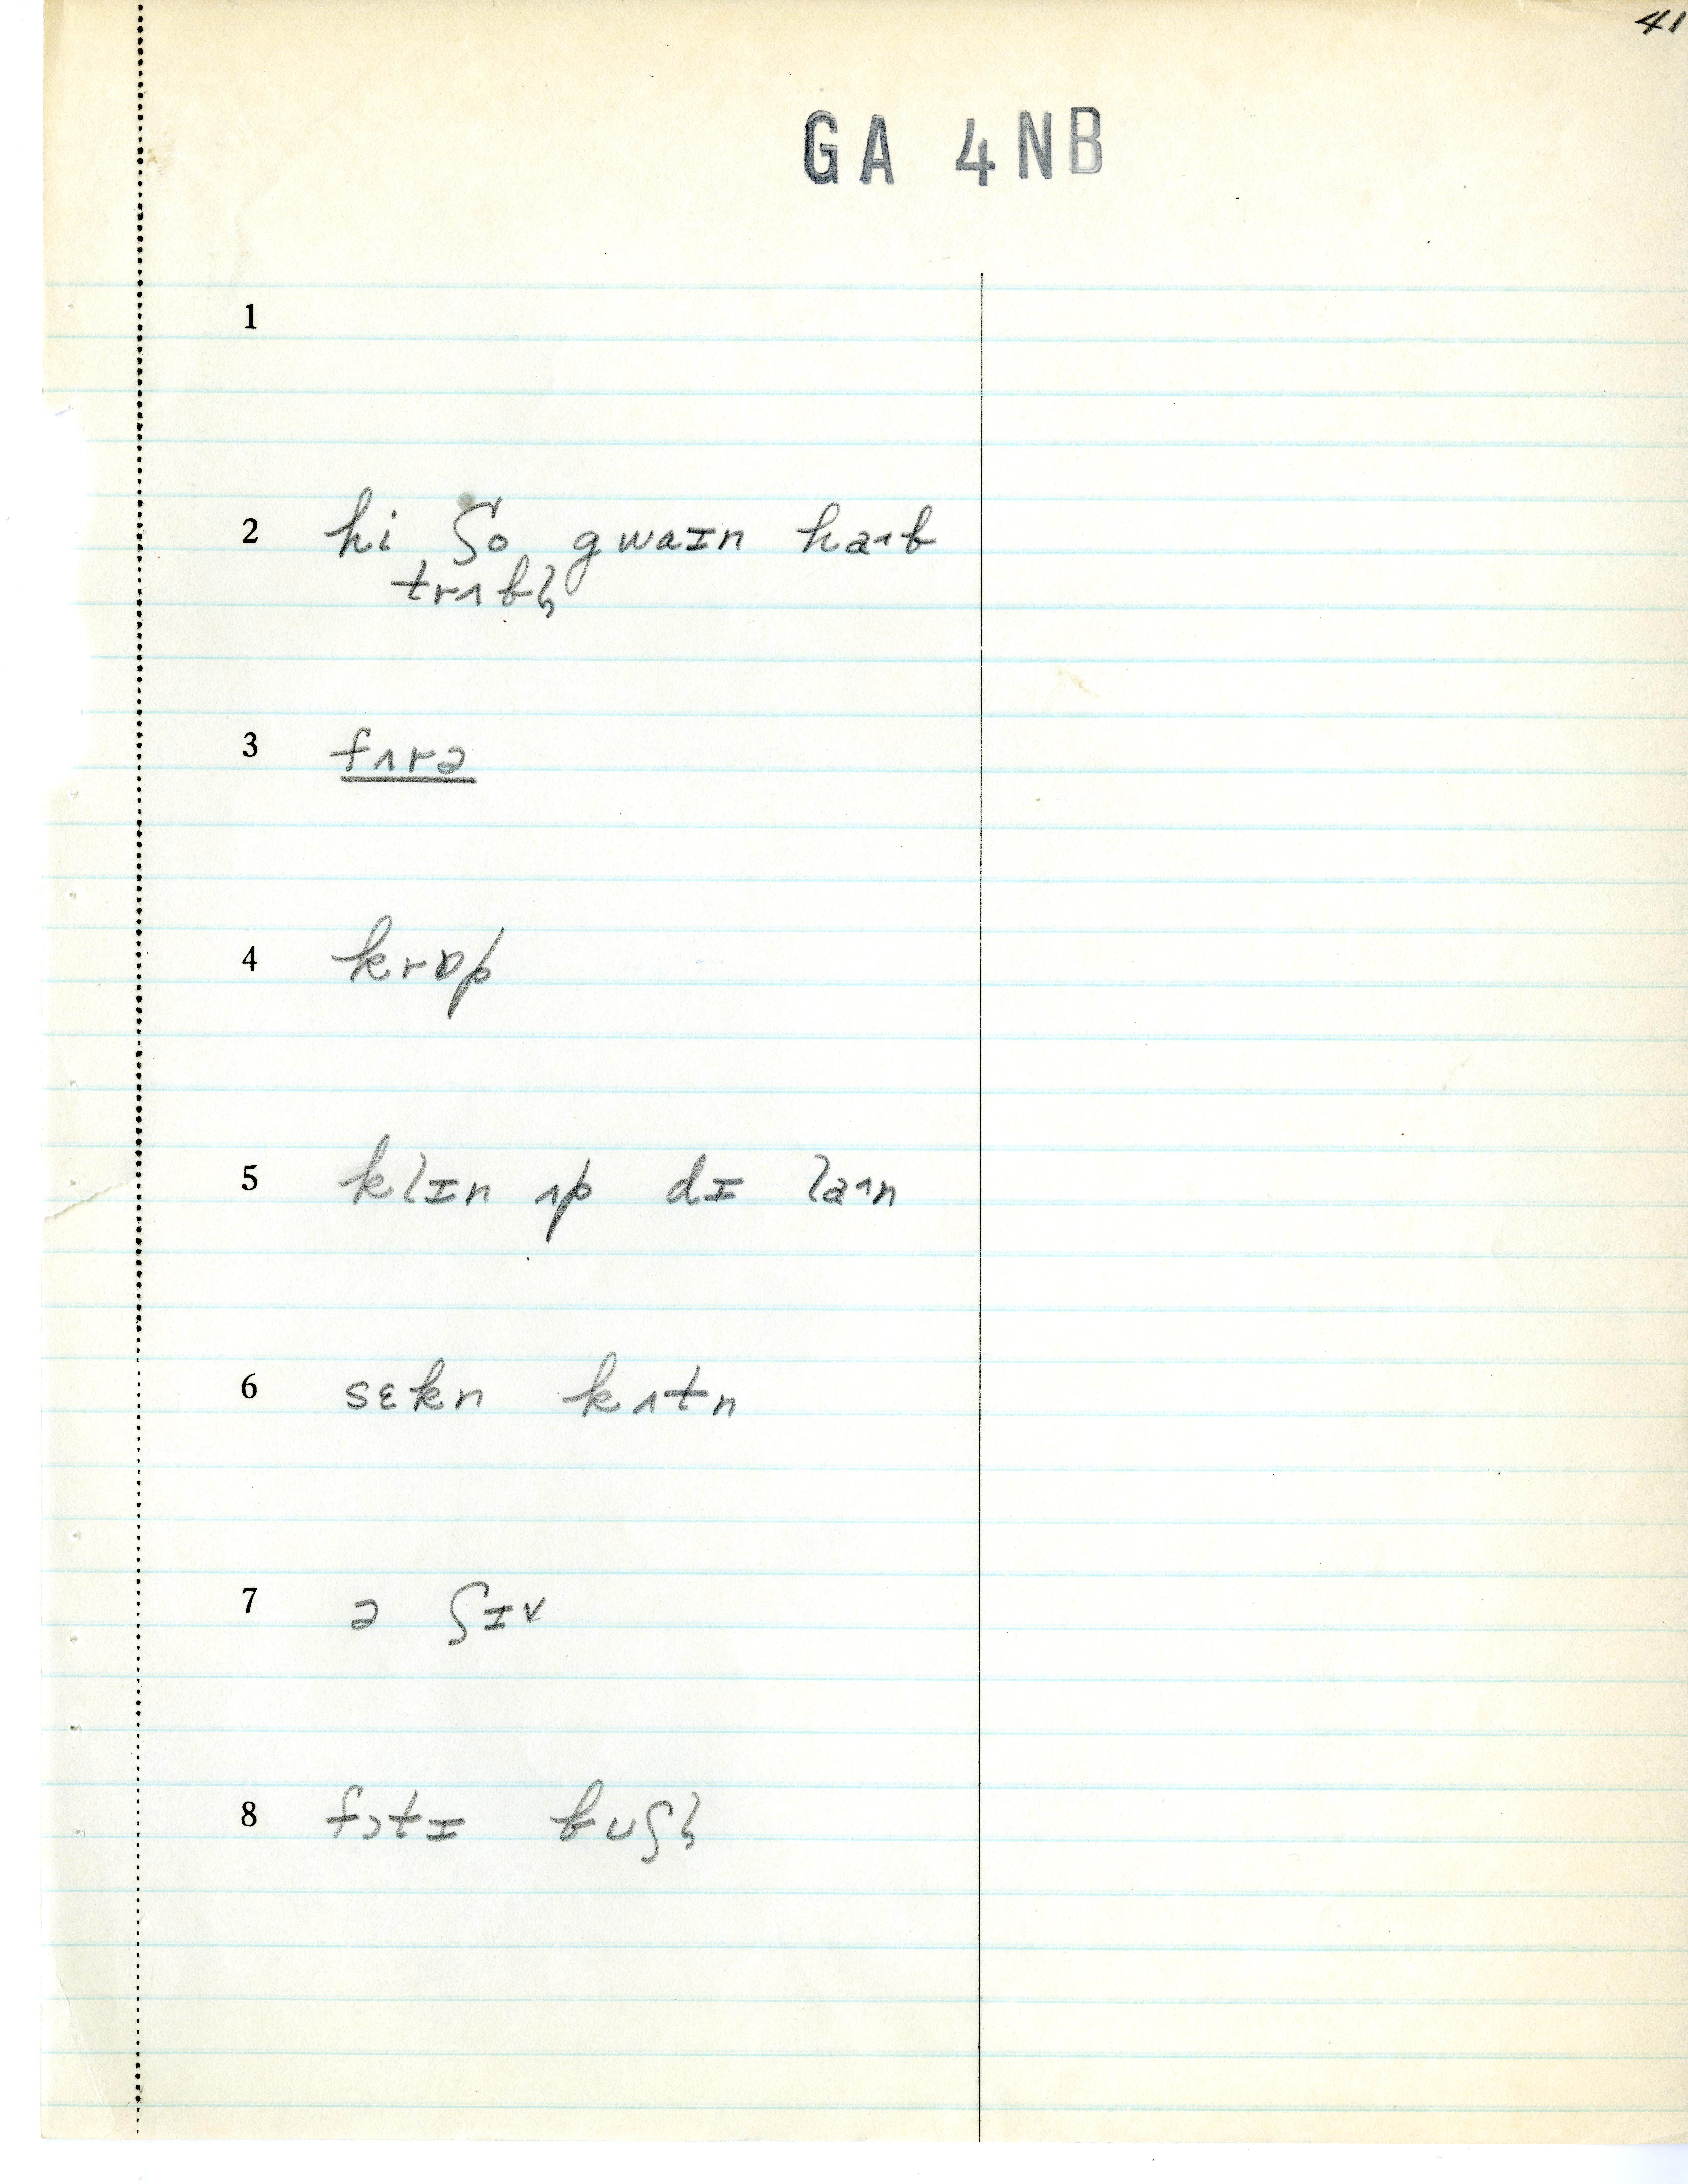 41
GA 4NB
1
2 hi ʃo gwaɪn haʌb
trʌbl̩
3 fʌrə
4 krɒp
5 klɪn ʌp dɪ laʌn
6 sɛkn kʌtn
7 ə ʃɪv
8 fɔtɪ buʃl̩